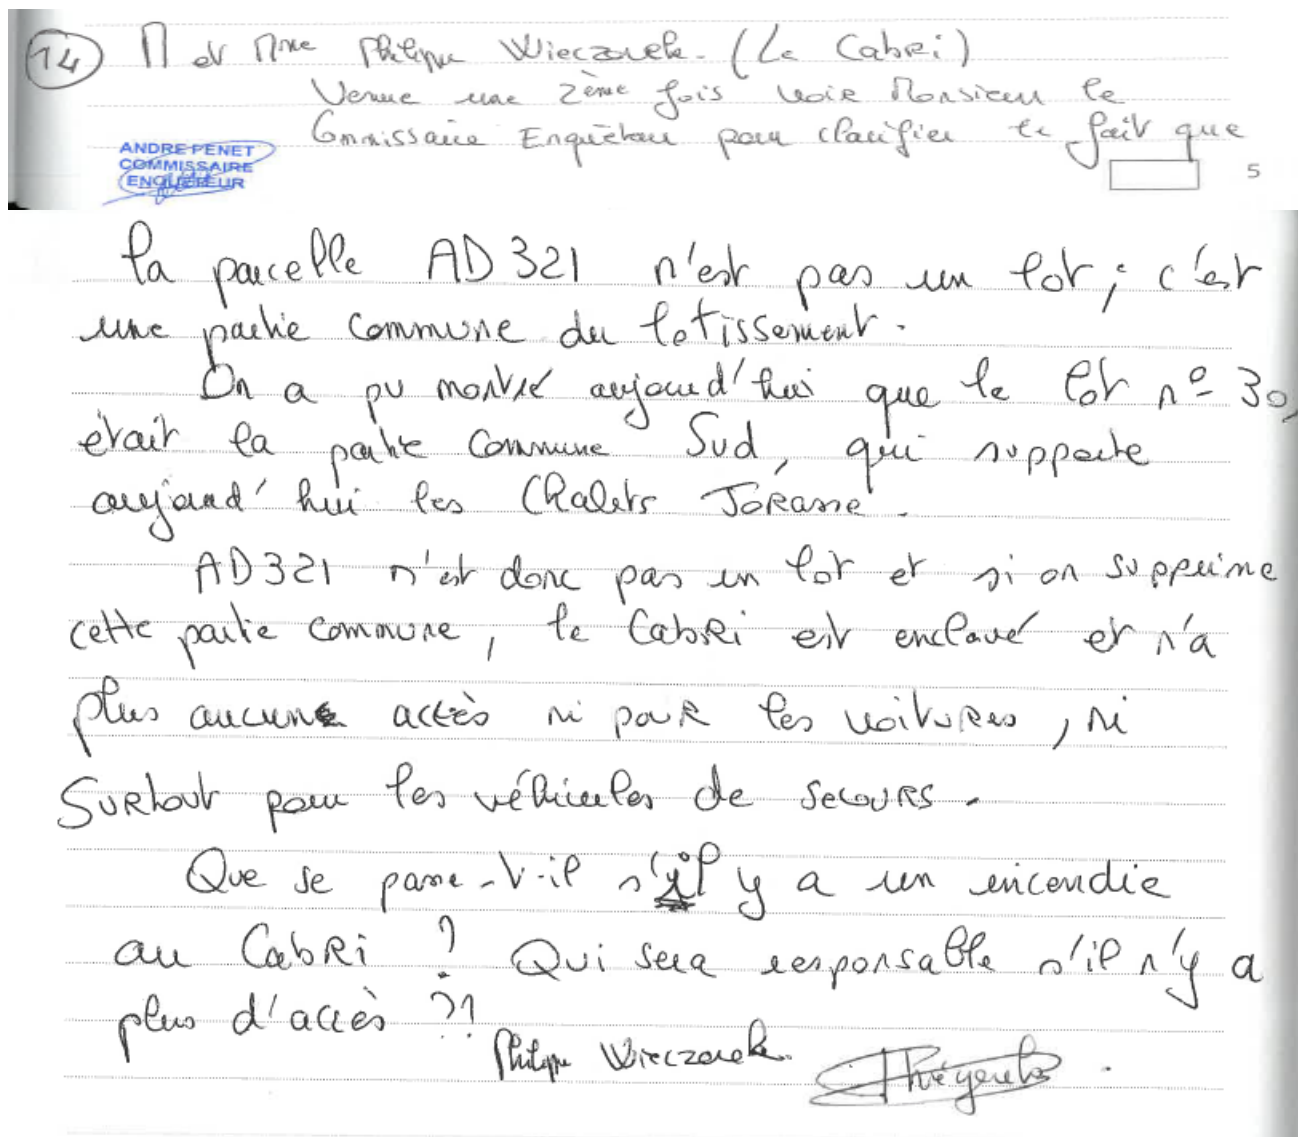 14 M et Mme Philippe Wieczorek. (Le Cabri)
Venue une 2ème fois voir Monsieur le
Commissaire Enquêteur pour clarifier le fait que
ANDRE PENET
COMMISSAIRE
ENQUÊTEUR
5
la parcelle AD 321 n'est pas un lot ; c'est
une partie commune du lotissement.
On a pu montré aujourd'hui que le lot nº 30,
était la partie commune Sud, qui supporte
aujourd'hui les Chalets Jorasse.
AD321 n'est donc pas un lot et si on supprime
cette partie commune, le Cabri est enclavé et n'a
plus aucune accès ni pour les voitures, ni
surtout pour les véhicules de secours.
Que se passe-t-il s'il y a un incendie
au Cabri ? Qui sera responsable s'il n'y a
plus d'accès ?!
Philippe Wieczorek.